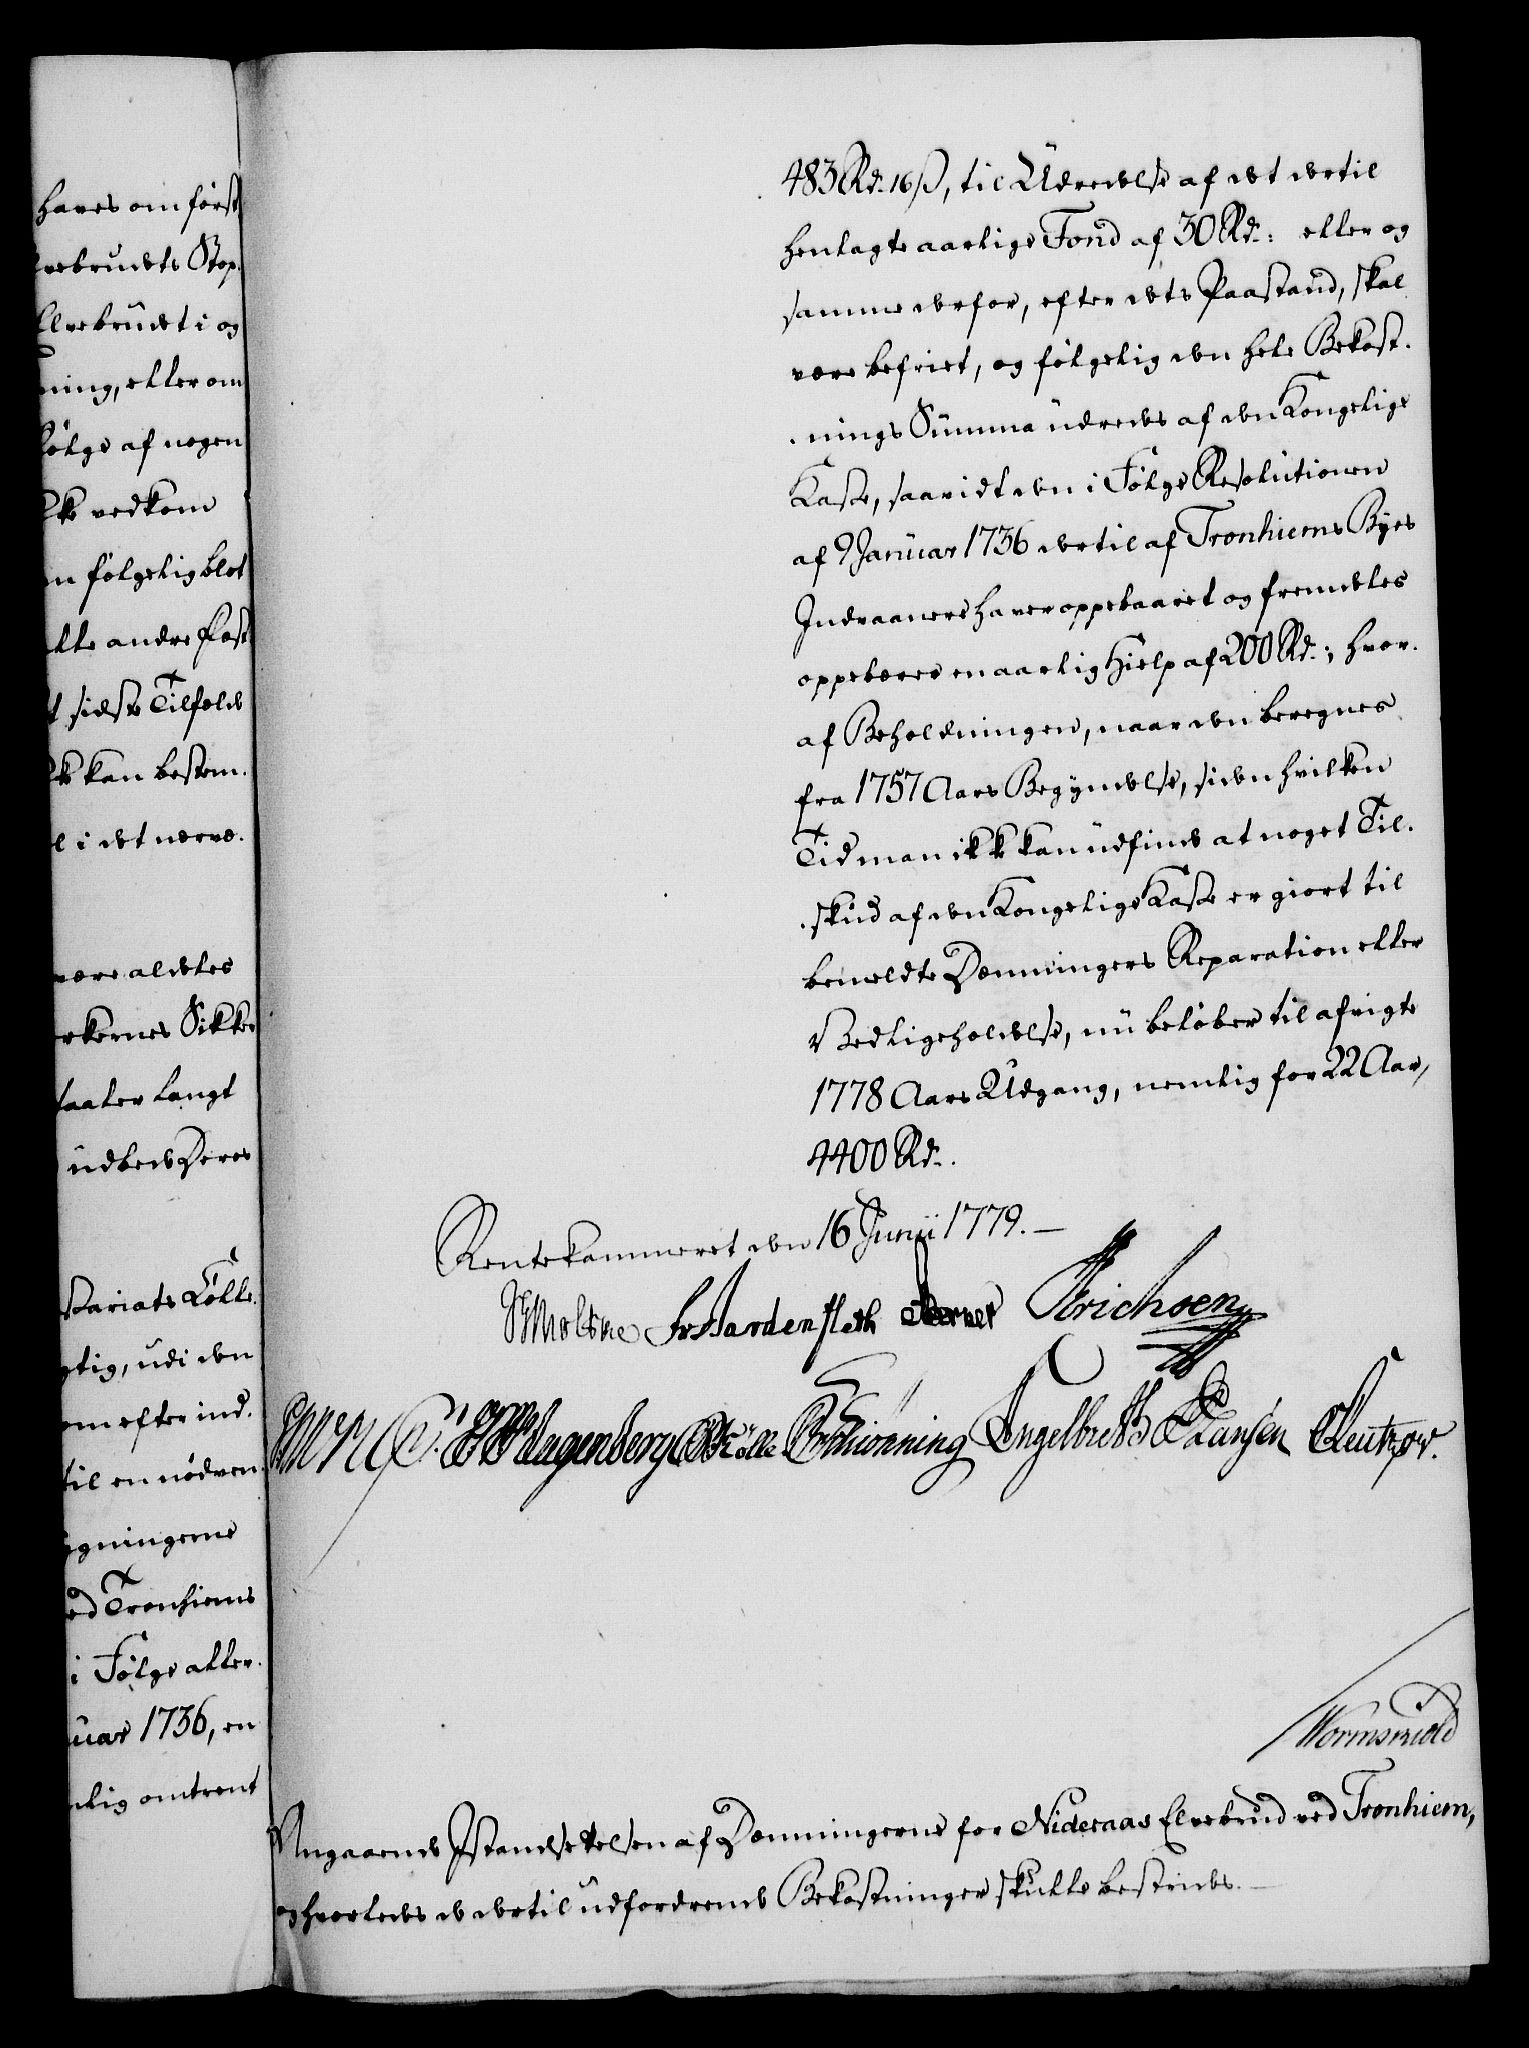 haves om først
vebrudets Stop.
Elvebrudet i og
ning, eller om
følge af nogen
vedkom
følgelig blot
alle andre Post
sidste Tilfælde
kan bestem.
i det nærvæ.
være aldeles
erkernes Sikker
taaler langt
udbede Deres
stariats Colle.
gtig, udi den
om efter ind.
til en nødven
gningerne
ved Tronhiems
i Følge aller.
uar 1736, en
nlig omtrent
483 Rd. 16 ß, til Udredelse af det dertil
henlagte aarlige Fond af 30 Rd.: eller og
samme derfor, efter dets Paastand, skal
være befriet, og følgelig den hele Bekost.
nings Summa udredes af den Kongelige
Kasse, saavidt den i Følge Resolutionen
af 9 Januar 1736 dertil af Tronhiems Byes
Indvaanere haver oppebaaret og fremdeles
oppebærer en aarlig Hielp af 200 Rd.; hvor.
af Beholdningen, naar den beregnes
fra 1757 Aars Begyndelse, siden hvilken
Tid man ikke kan udfinde at noget Til.
skud af den Kongelige Kasse er giort til
bemeldte Dæmningers Reparation eller
Vedligeholdelse, nu beløber til afvigte
1778 Aars Udgang, nemlig for 22 Aar,
4400 Rd.
Rentekammeret den 16 Junii 1779.
Moltke Fr Hardenfleth Erichsen
Hagenberg Schiønning Engelbreth Hansen Leutzow.
Wormskiold
Angaaende Istandsettelsen af Dæmningerne for Nideraas Elvebrud ved Tronhiem,
og hvorledes de dertil udfordrende Bekostninger skulle bestrides.